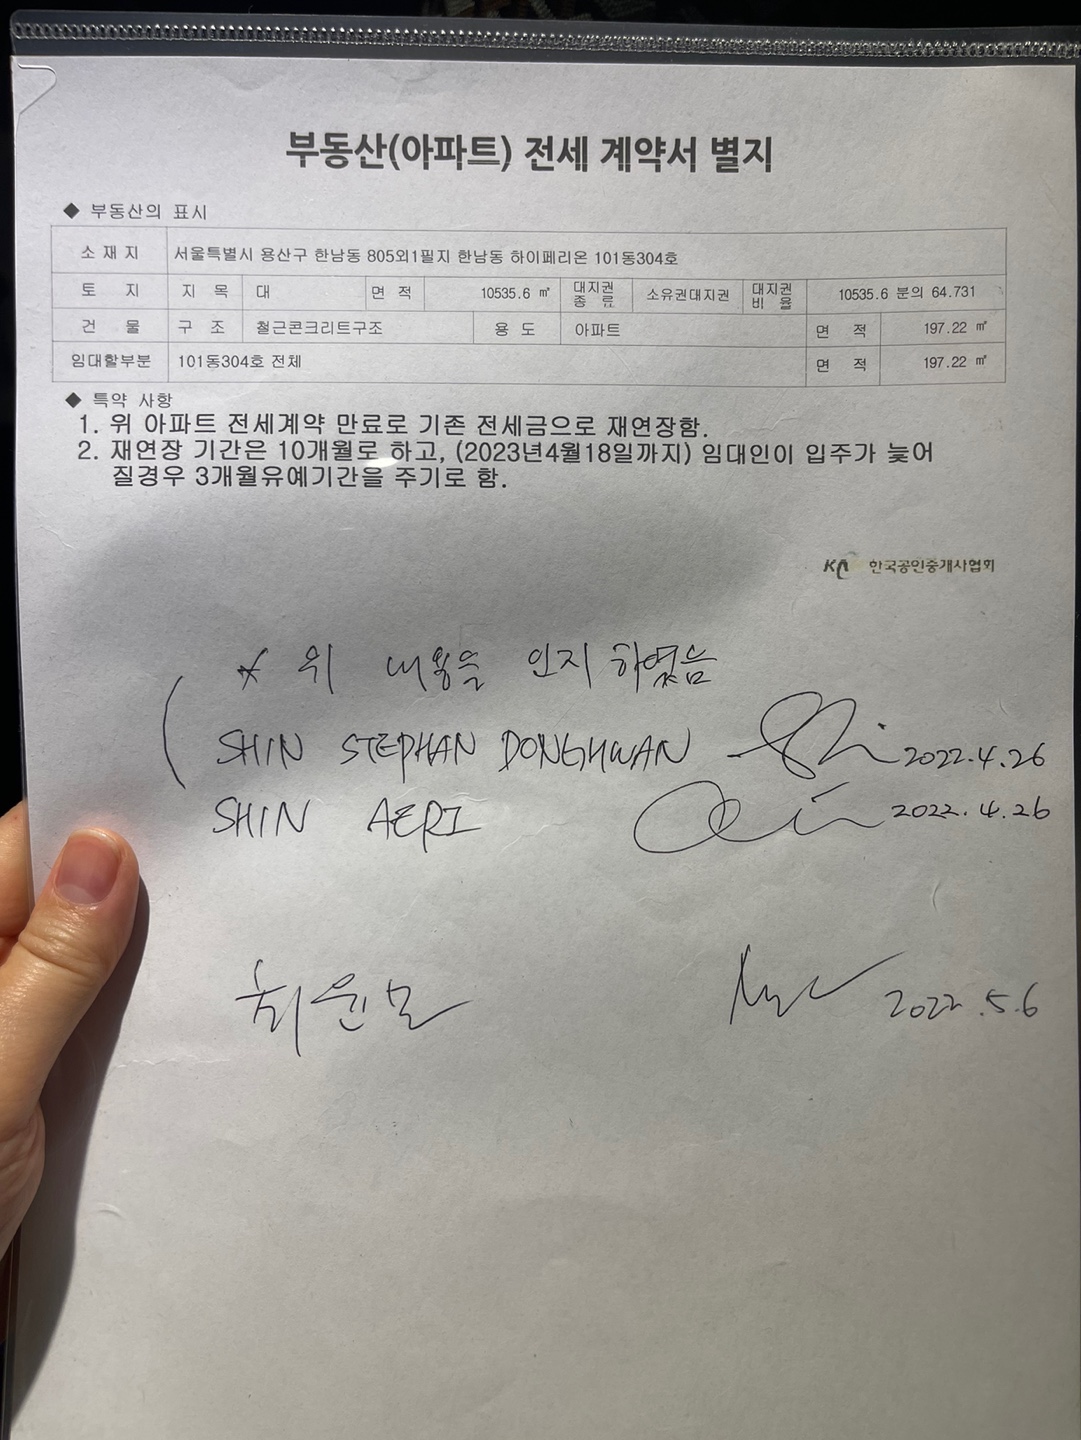 부동산(아파트) 전세 계약서 별지
◆ 부동산의 표시
소 재 지 서울특별시 용산구 한남동 805외1필지 한남동 하이페리온 101동304호
토 지 지 목 대 면 적 10535.6 ㎡ 대지권 종 류 소유권대지권 대지권 비 율 10535.6 분의 64.731
건 물 구 조 철근콘크리트구조 용 도 아파트 면 적 197.22 ㎡
임대할부분 101동304호 전체 면 적 197.22 ㎡
◆ 특약 사항
1. 위 아파트 전세계약 만료로 기존 전세금으로 재연장함.
2. 재연장 기간은 10개월로 하고, (2023년4월18일까지) 임대인이 입주가 늦어
질경우 3개월유예기간을 주기로 함.
KA 한국공인중개사협회
* 위 내용을 인지 하였음
SHIN STEPHAN DONGHWAN 2022.4.26
SHIN AERI 2022.4.26
최윤모 2022.5.6